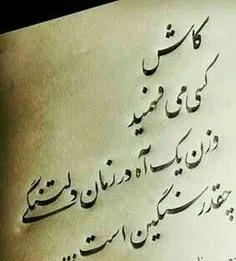 کاش
کسی می فهمید
وزن یک آه در زمان دلتنگی
چقدر سنگین است....